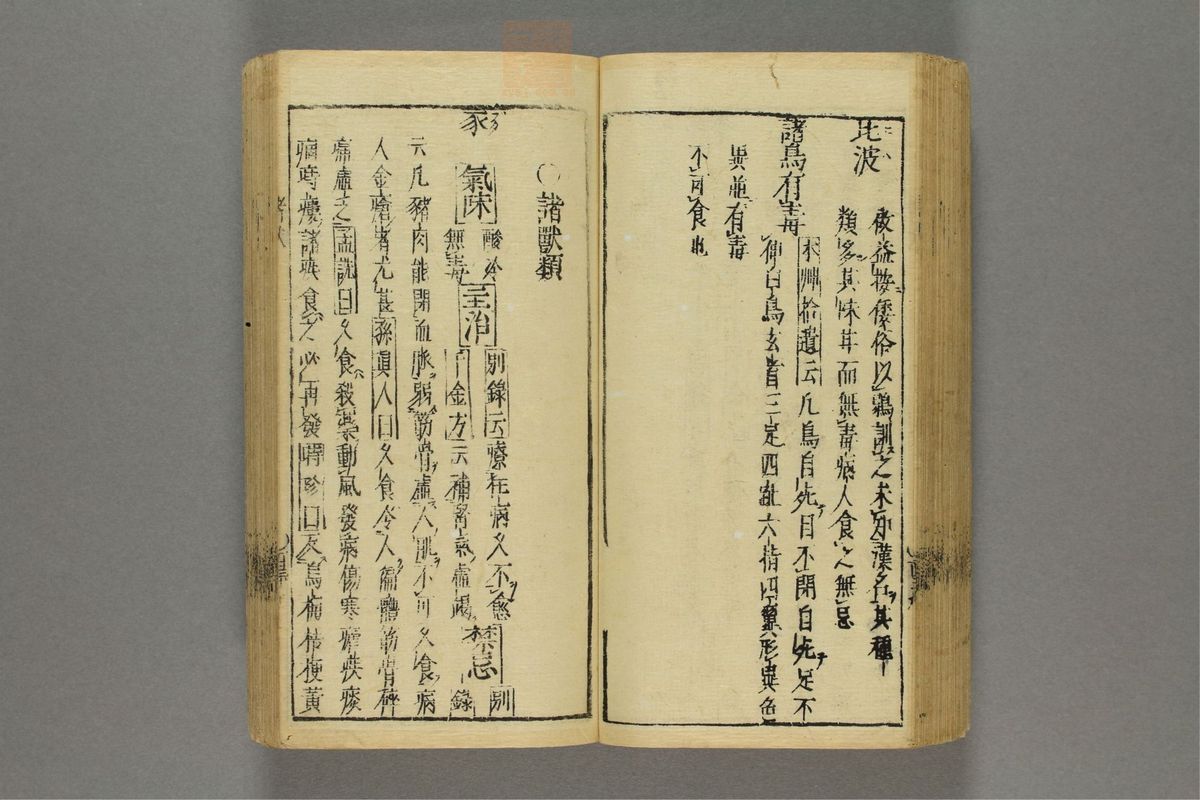 比波
夜益按倭俗以鷄訓之未知漢名其種
類多其味甘而無毒病人食之無忌
諸鳥有毒
本艸拾遺云凡鳥自死目不閉自死足不
伸白鳥玄首三足四距六指四翼異形異色
異並有毒
不可食也
○諸獸類
豕
氣味 酸冷無毒 主治 別錄云療狂病久不愈
千金方云補腎氣虛竭 禁忌 別錄
云凡豬肉能閉血脉弱筋骨虛人肌不可久食病
人金瘡者尤甚孫眞人曰久食令人偏體筋骨碎
痛虛之孟詵曰久食殺藥動風發病傷寒瘧痰
痼時癭諸疾食之必再發時珍曰反烏梅桔梗黃